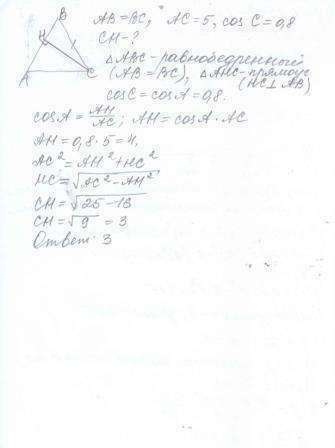 B
H
A
C
AB = BC, AC = 5, cos C = 0,8
CH - ?
△ABC - равнобедренный
(AB = BC), △AHC - прямоуг
(HC ⊥ AB)
cosC = cosA = 0,8.
cosA = AH/AC; AH = cosA · AC
AH = 0,8 · 5 = 4,
AC² = AH² + HC²
HC = √AC² - AH²
CH = √25 - 16
CH = √9 = 3
Ответ: 3